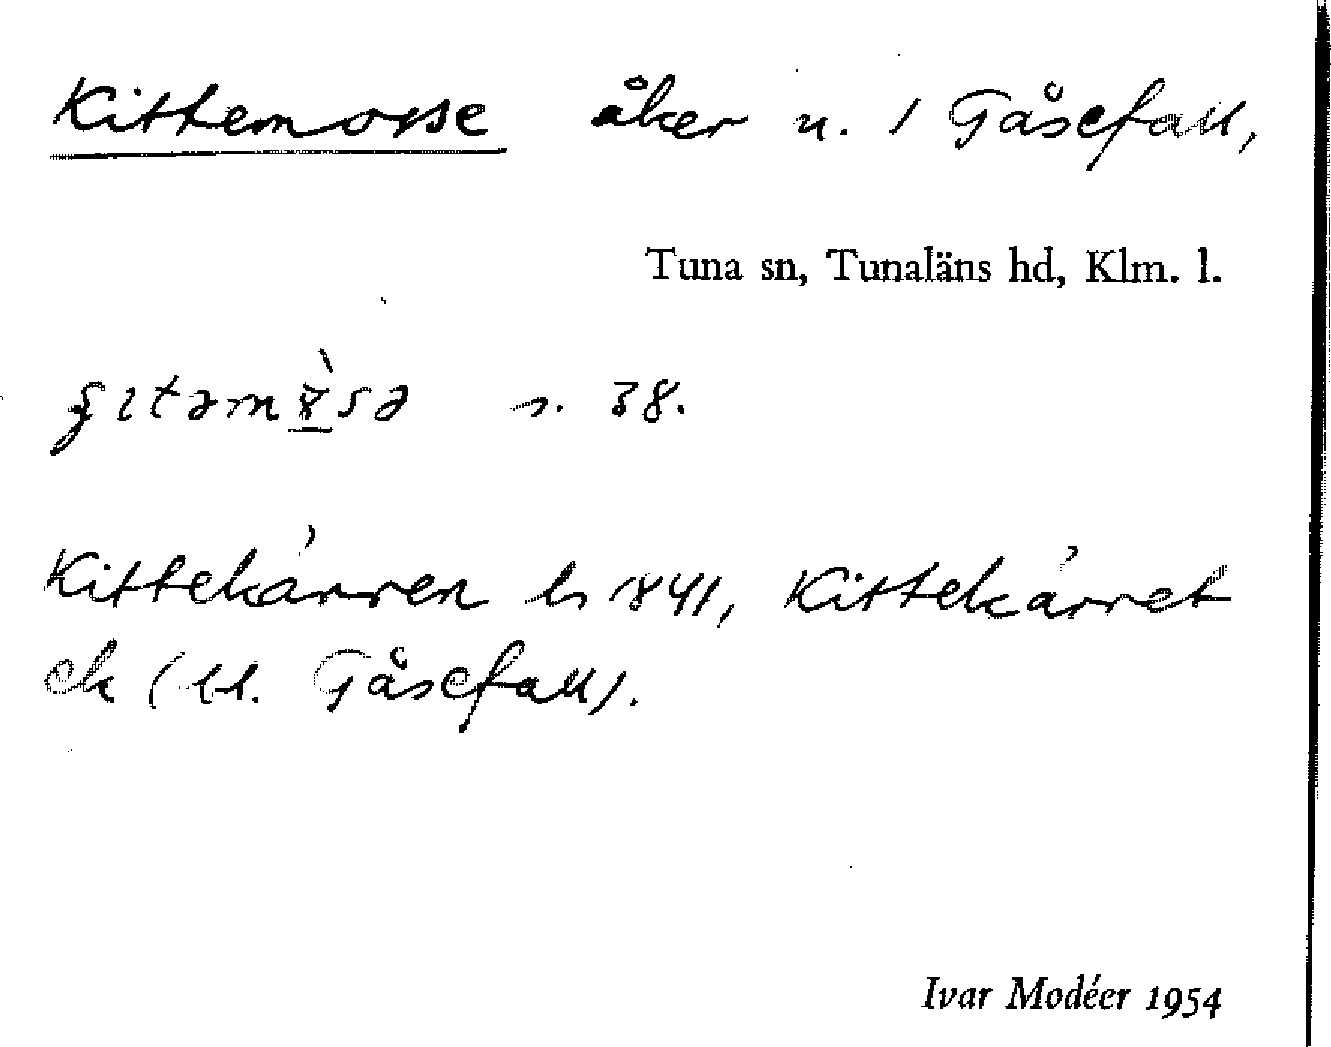 Kittemosse åker u. / Gåsefall,
Tuna sn, Tunaläns hd, Klm. l.
s. 38.
Kittekärren ls 1841, Kittekärret
ek (tl. Gåsefall).
Ivar Modéer 1954